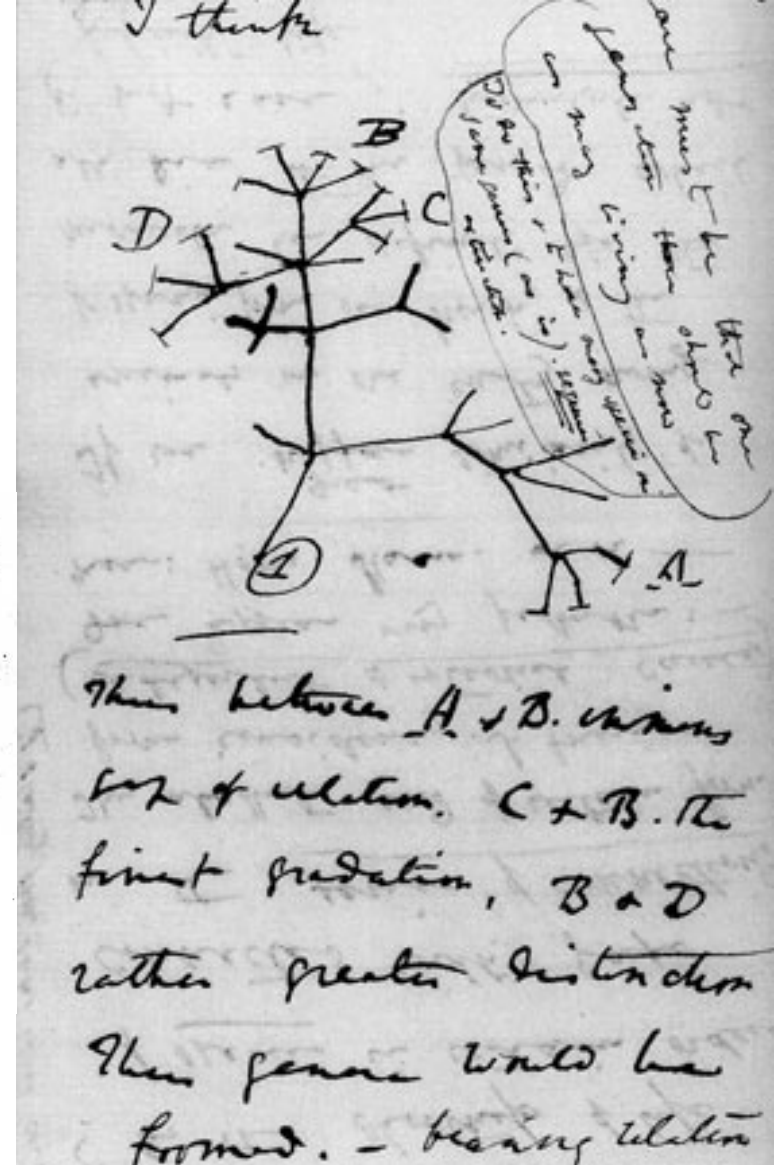 I think
case must be that one
generation then should be
as many living as now
To do this & to have many species in
same genus (as is). requires
extinction.
B
C
D
1
A
Thus between A & B. immens
gap of relation. C & B. the
finest gradation, B & D
rather greater distinction
Thus genera would be
formed. — bearing relation